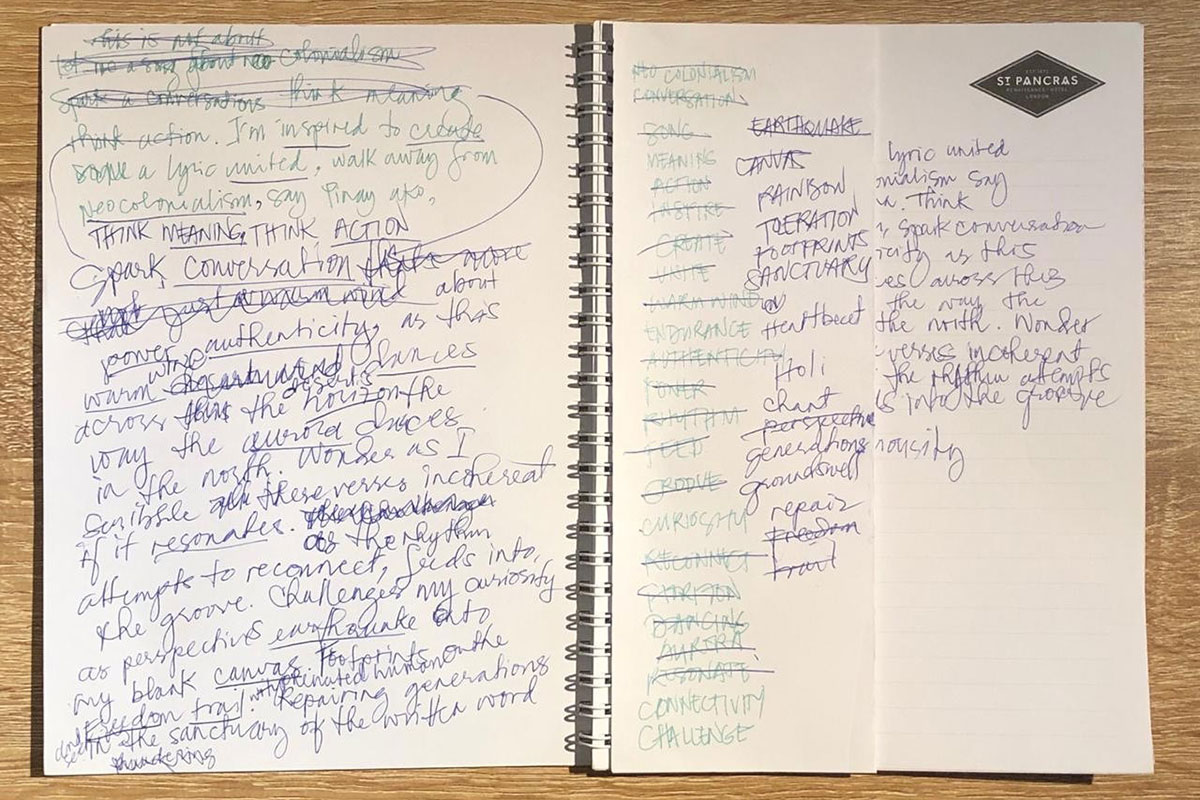 this is not about
let me a song about neo colonialism
Spark a conversations think meaning
think action. I'm inspired to create
a lyric united, walk away from
Neocolonialism, say Pinay ako,
THINK MEANING, THINK ACTION
Spark conversation
about
power authenticity, as this
warm wind dances
across the horizon the
way the aurora dances
in the north. Wonder as I
scribble these verses incoherent
if it resonates.
as the rhythm
attempts to reconnect, feeds into,
the groove. Challenges my curiosity
as perspectives earthquake onto
my blank canvas. Footprints on the
Freedom trail. Repairing generations
in the sanctuary of the written word
NEO COLONIALISM
CONVERSATION
SONG
MEANING
ACTION
INSPIRE
CREATE
UNITE
WARM WIND
ENDURANCE
AUTHENTICITY
POWER
RHYTHM
FEED
GROOVE
CURIOSITY
RECONNECT
HORIZON
DANCING
AURORA
RESONATE
CONNECTIVITY
CHALLENGE
EARTHQUAKE
CANVAS
FOOTPRINTS
SANCTUARY
Heartbeat
Holi
chant
perspective
generations
groundswell
repair
Freedom
trail
ST PANCRAS
RENAISSANCE HOTEL
LONDON
lyric united
onialism say
Think
, spark conversation
icity as this
es across this
the way the
the north. Wonder
verses incoherent
the rhythm attempts
s into the groove
iousity